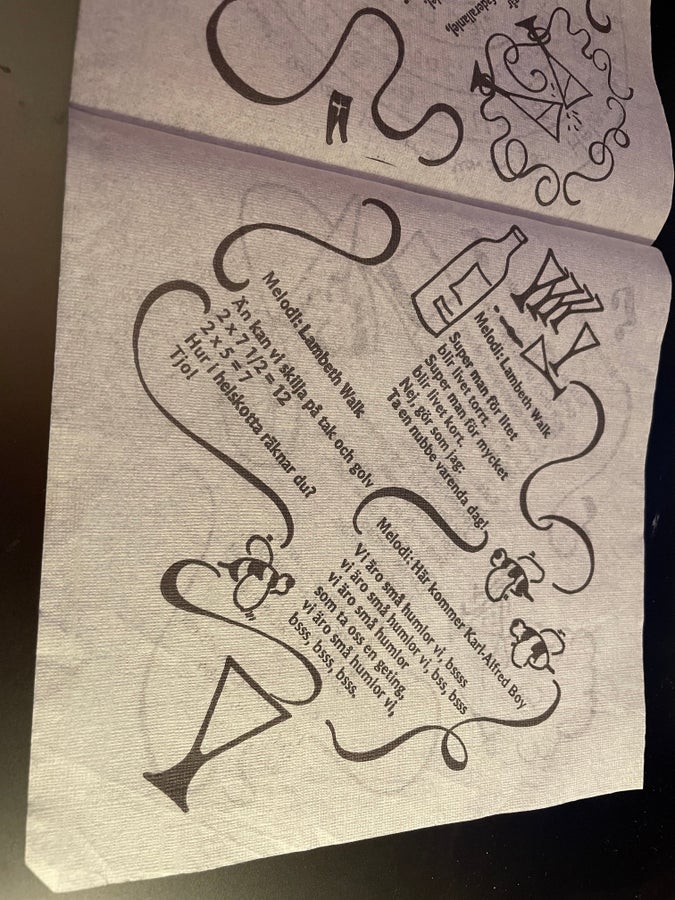 Melodi: Lambeth Walk
Super man för litet
blir livet torrt.
Super man för mycket
blir livet kort.
Nej, gör som jag:
Ta en nubbe varenda dag!
Melodi: Lambeth Walk
Än kan vi skilja på tak och golv
2 x 7 1/2 = 12
2 x 5 = 7
Hur i helskotta räknar du?
Tjo!
Melodi: Här kommer Karl-Alfred Boy
Vi äro små humlor vi, bssss
vi äro små humlor vi, bss, bss
vi äro små humlor
som ta oss en geting,
vi äro små humlor vi,
bsss, bsss, bsss.